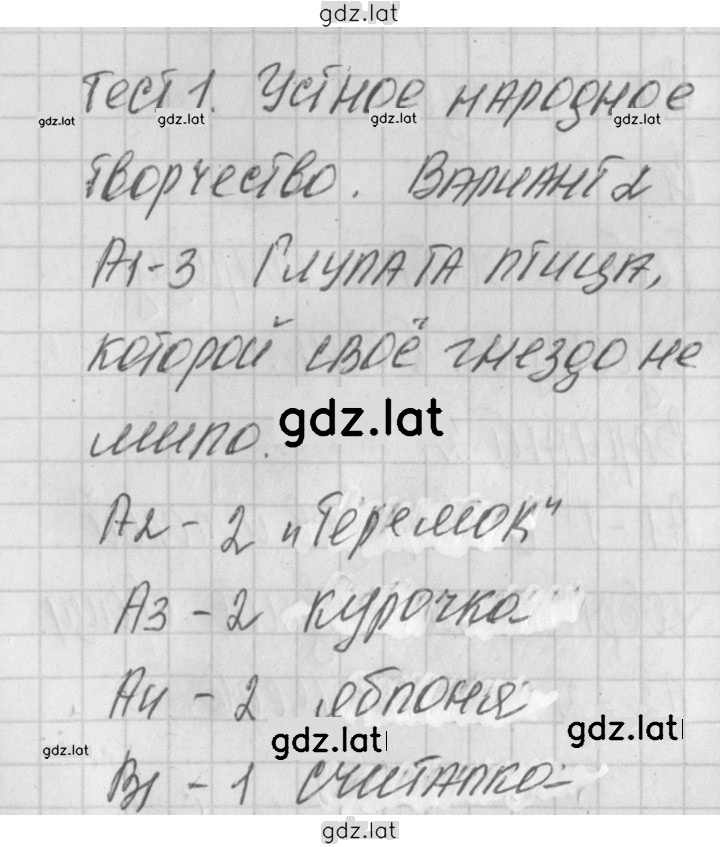 gdz.lat
Тест 1. Устное народное
gdz.lat gdz.lat gdz.lat gdz.lat
творчество. Вариант 2
А1-3 Глупа та птица,
которой своё гнездо не
мило.
gdz.lat
А2 - 2 „Теремок"
А3 - 2 курочка
А4 - 2 яблоня
gdz.lat gdz.lat gdz.lat
В1 - 1 считалка-
gdz.lat